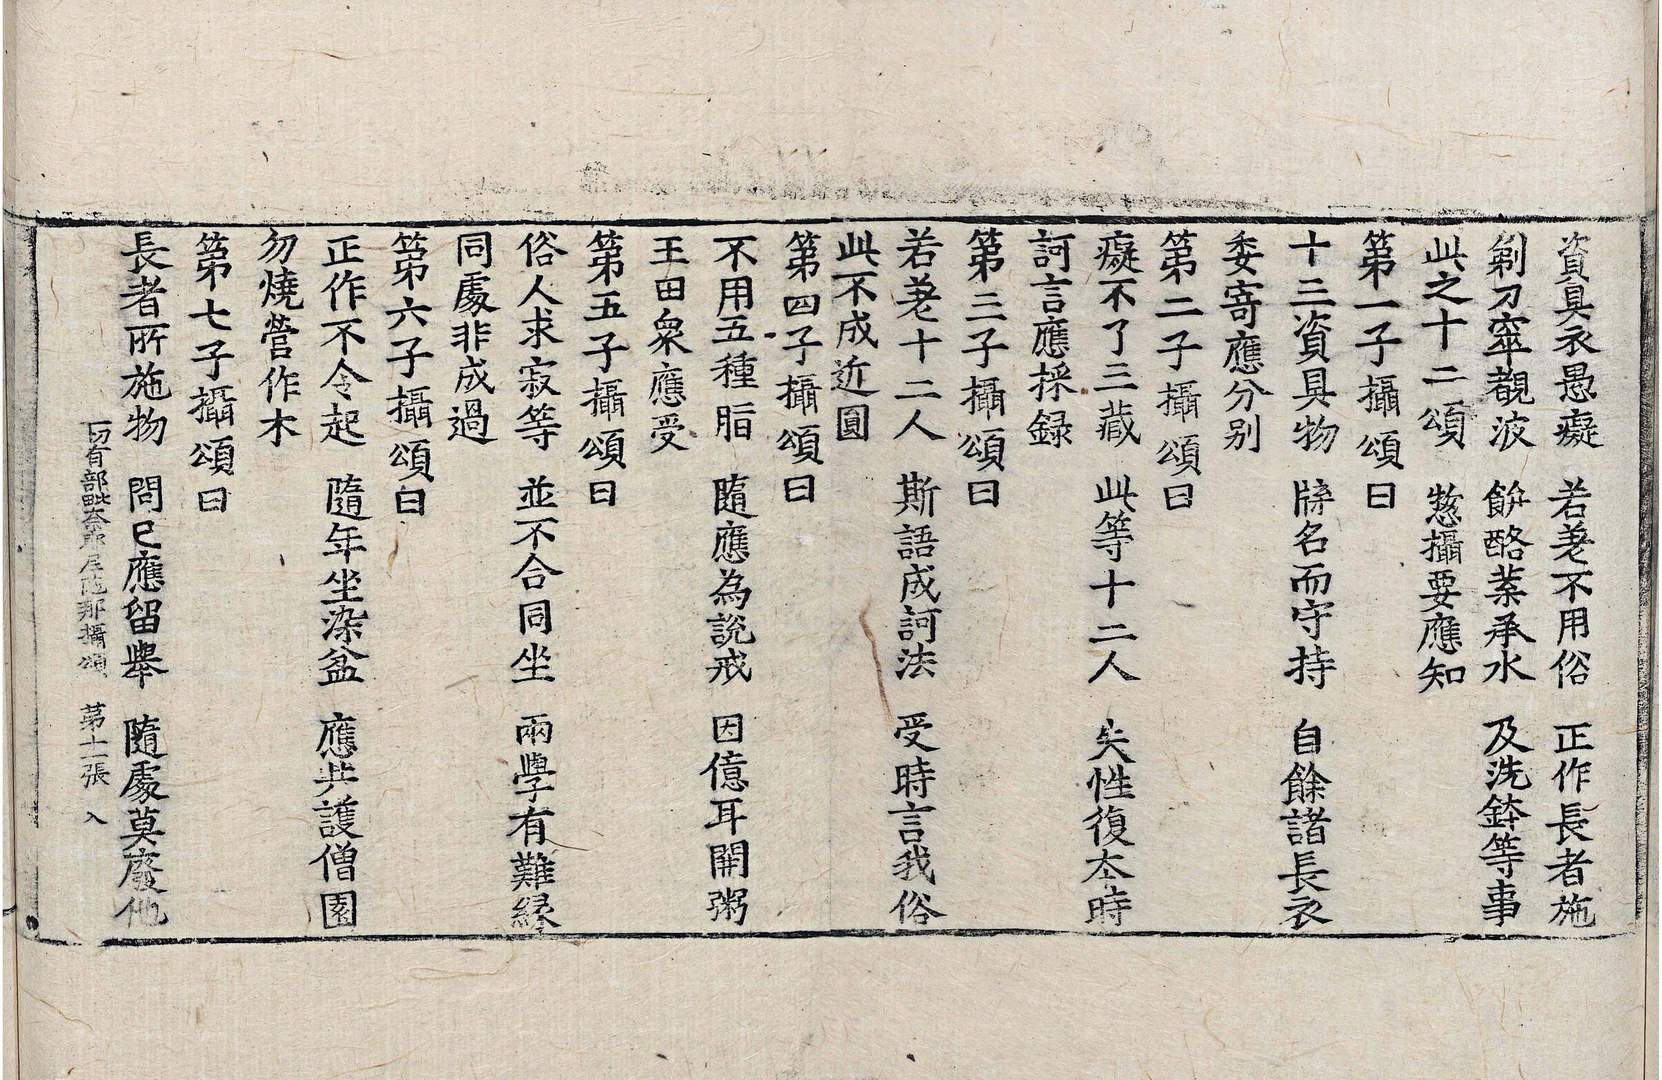 資具衣愚癡　若老不用俗　正作長者施
剃刀窣覩波　餅酪葉承水　及洗鉢等事
此之十二頌　惣攝要應知
第一子攝頌曰
十三資具物　牒名而守持　自餘諸長衣
委寄應分别
第二子攝頌曰
癡不了三藏　此等十二人　失性復本時
訶言應採録
第三子攝頌曰
若老十二人　斯語成訶法　受時言我俗
此不成近圓
第四子攝頌曰
不用五種脂　隨應為說戒　因億耳開粥
王田衆應受
第五子攝頌曰
俗人求寂等　並不合同坐　兩學有難緣
同處非成過
第六子攝頌曰
正作不令起　隨年坐染盆　應共護僧園
勿燒營作木
第七子攝頌曰
長者所施物　問已應留舉　隨處莫廢他
一切有部毗奈耶尼陁那攝頌　第十一張　入